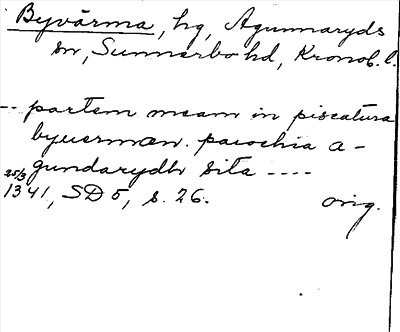 Byvärma, hg, Agunnaryds
sn, Sunnerbo hd, Kronob. l.
-- partem meam in piscatura
byuerman. parochia a-
gundarydh sita ----
25/3
1341, SD 5, s. 26. orig.